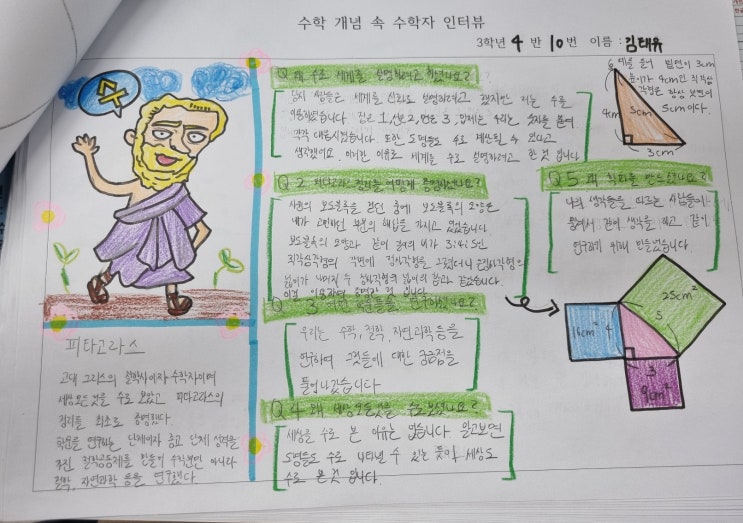 수학 개념 속 수학자 인터뷰
3학년 4 반 10 번 이름 : 김태유
수
피타고라스
고대 그리스의 철학자이자 수학자이며
세상 모든 것을 수로 보았고 피타고라스의
정리를 최초로 증명했다.
학문을 연구하는 단체이자 종교 단체 성격을
가진 철학공동체를 만들어 수학뿐만 아니라
철학, 자연과학 등을 연구했다.
Q 왜 수로 세계를 설명하려고 하셨나요?
당시 사람들은 세계를 신화로 설명하려고 했지만 저는 수를
이용하였습니다. 점은 1, 선은 2, 면은 3, 입체는 4라는 숫자를 붙여
각각 대응시켰습니다. 또한 도형들도 수로 계산될 수 있다고
생각했어요. 이러한 이유로 세계를 수로 설명하려고 한 것 입니다
Q 2 피타고라스 정리를 어떻게 증명하셨나요?
사원의 보도블록을 걷던 중에 보도블록의 모양은
내가 고민하던 부분의 해답을 가지고 있었습니다.
보도블록의 모양과 같이 변의 비가 3:4:5인
직각삼각형의 각변에 정사각형을 그렸더니 큰 정사각형의
넓이가 나머지 두 정사각형의 넓이의 합과 같았습니다.
이걸 이용하여 증명한 것 입니다.
Q 3 어떤 학문들을 연구하셨나요?
우리는 수학, 철학, 자연과학 등을
연구하여 그것들에 대한 궁금점을
풀어나갔습니다
Q 4 왜 세상 모든것을 수로 보셨나요?
세상을 수로 본 이유는 많습니다. 알고보면
도형들도 수로 나타낼 수 있는 듯이 세상도
수로 본 것 입니다.
예를 들어 밑변이 3cm
높이가 4cm인 직각삼
각형은 항상 빗변이
5cm이다.
4cm
5cm
3cm
Q 5 왜 학파를 만드셨나요?
나의 생각들을 따르는 사람들이
몰려서 같이 생각을 하고 같이
연구하기 위해 만들었습니다.
25cm²
16cm² 4
5
3
9cm²